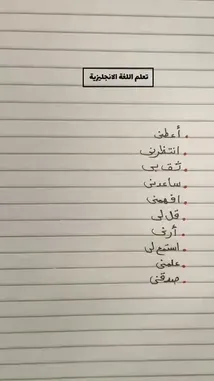 تعلم اللغة الانجليزية
أعطني
انتظرني
ثق بي
ساعدني
افهمني
قل لي
أرني
استمع لي
علمني
صدقني